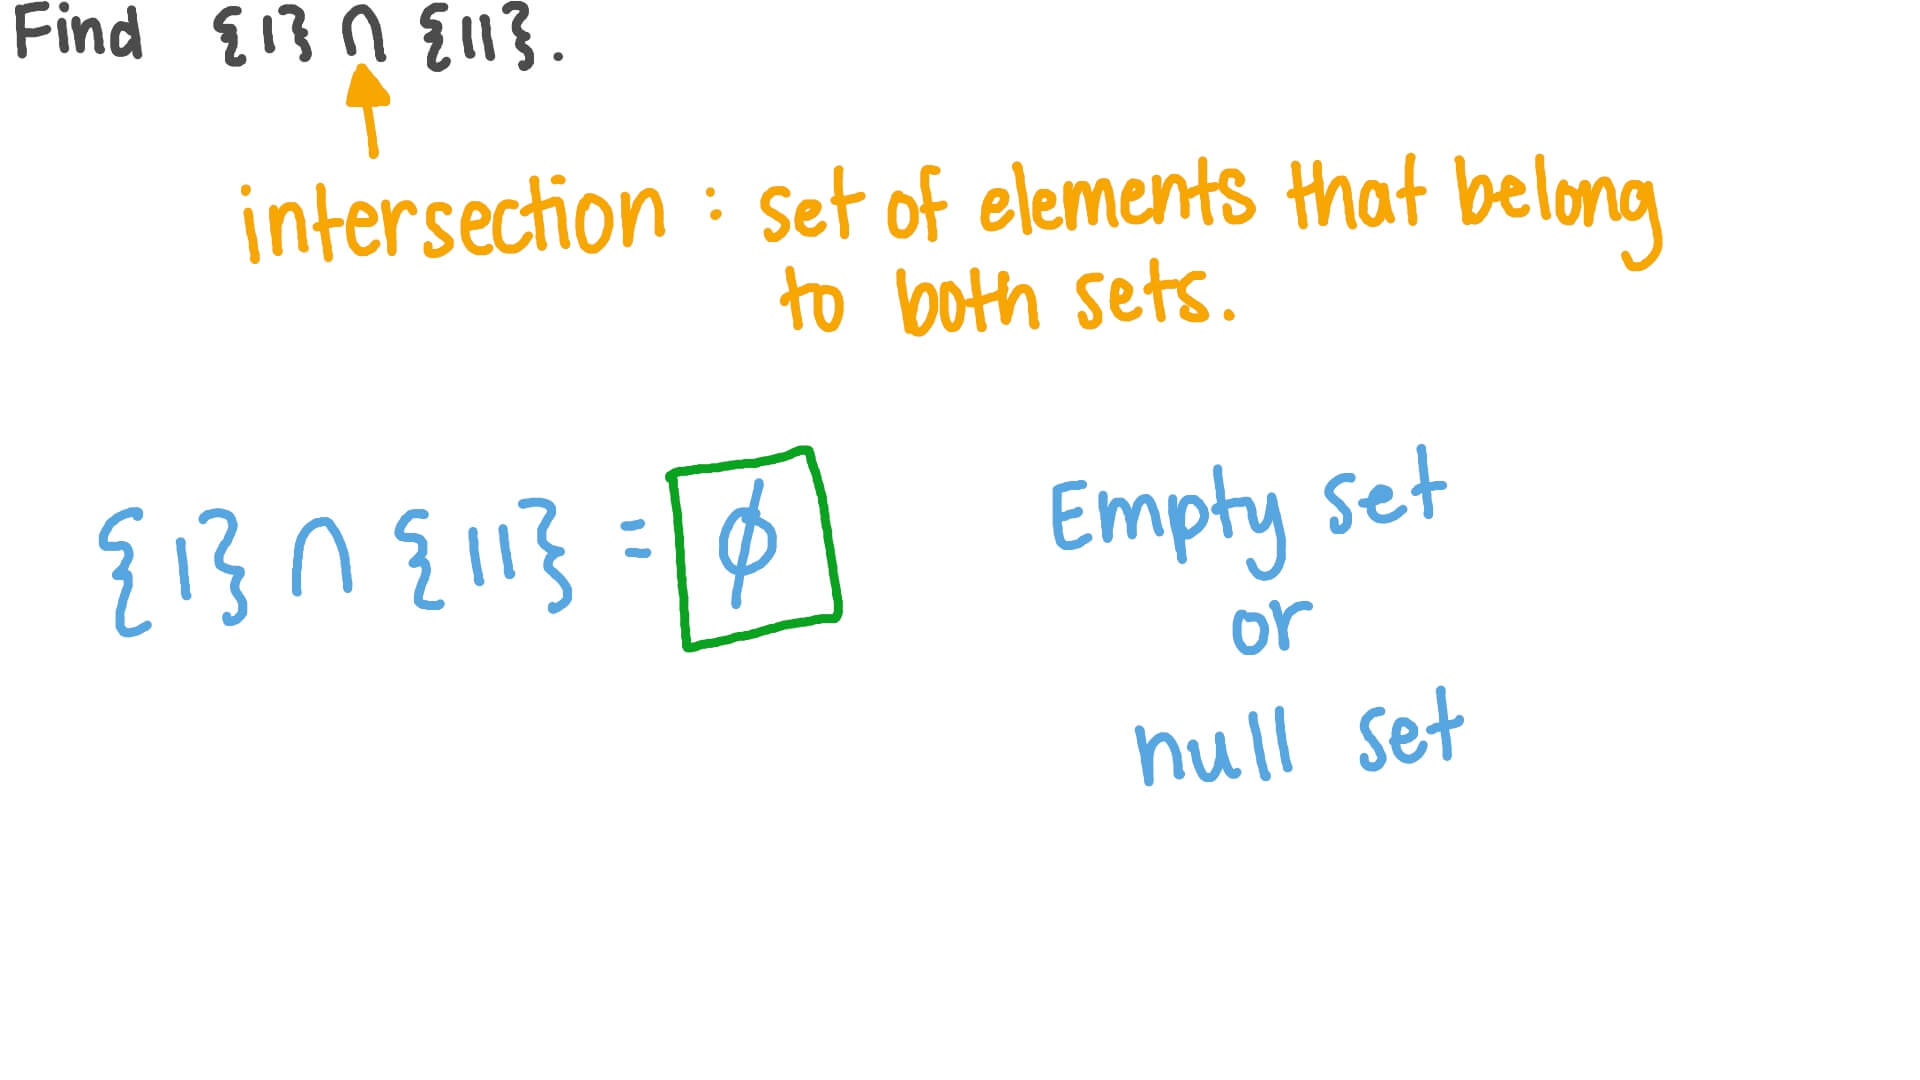 Find {1} ∩ {11}.
intersection : set of elements that belong
to both sets.
{1} ∩ {11} = ∅
Empty set
or
null set